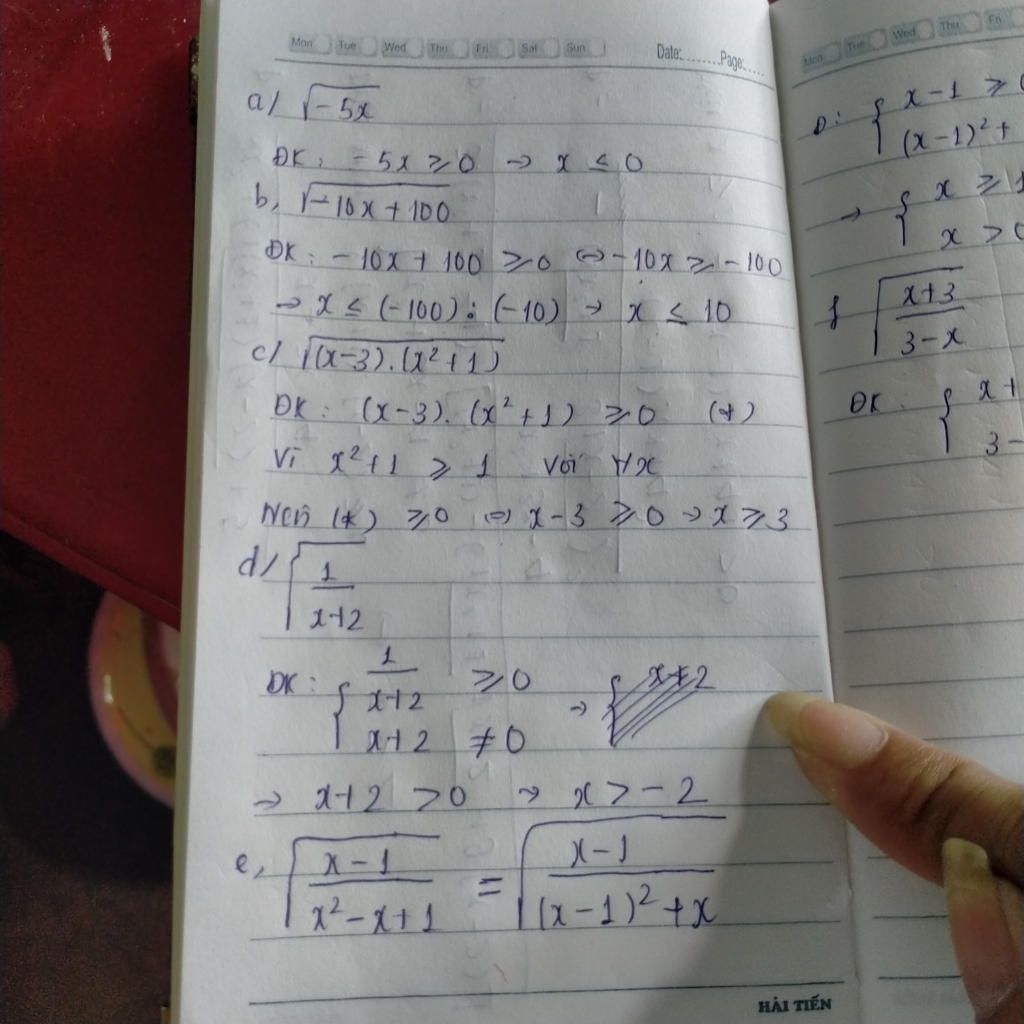 Mon Tue Wed Thu Fri Sat Sun Date:........Page:.....
a/ √(-5x)
ĐK: -5x ≥ 0 → x ≤ 0
b, √(-10x + 100)
ĐK: -10x + 100 ≥ 0 ⇔ -10x ≥ -100
→ x ≤ (-100) : (-10) → x ≤ 10
c/ √((x-3).(x²+1))
ĐK: (x-3).(x²+1) ≥ 0 (*)
Vì x²+1 ≥ 1 với ∀x
Nên (*) ≥ 0 ⇔ x-3 ≥ 0 → x ≥ 3
d/ √(1/(x+2))
ĐK: { 1/(x+2) ≥ 0 → { x+2
x+2 ≠ 0
→ x+2 > 0 → x > -2
e, √((x-1)/(x²-x+1)) = √((x-1)/((x-1)²+x))
HẢI TIẾN
Mon Tue Wed Thu Fri
Đ: { x-1 ≥ 0
(x-1)²+
→ { x ≥ 1
x > 0
f √((x+3)/(3-x))
ĐK: { x+
3-